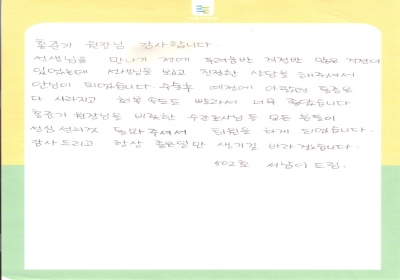 홍준기 원장님 감사합니다.
선생님을 만나기 전에 두려움반 걱정반 많은 걱정이
있었는데 선생님을 뵙고 친절한 상담을 해주셔서
안심이 되었습니다. 수술후 예전에 아팠던 통증은
다 사라지고 회복속도도 빨라서 너무 좋았습니다
홍준기 원장님을 비롯한 수간호사님들 모든 분들이
성심 성의껏 돌봐주셔서 퇴원을 하게 되었습니다.
감사드리고 항상 좋은일만 생기길 바라겠습니다.
502호 서남이 드림.